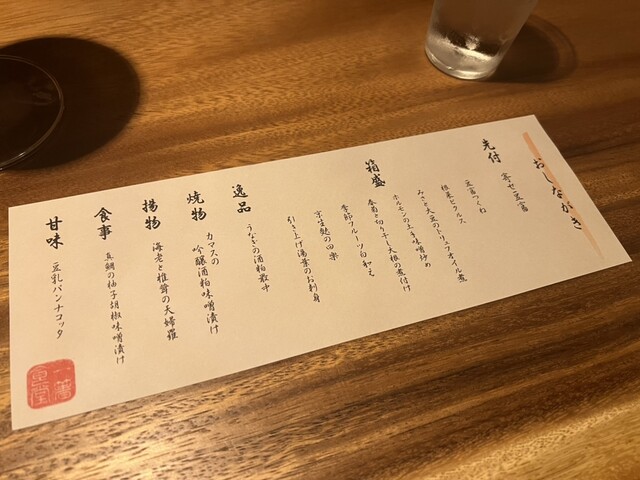 おしながき
先付
寄せ豆富
箱盛
豆富つくね
根菜ピクルス
みさと大豆のトリュフオイル煮
ホルモンの土手味噌炒め
春菊と切り干し大根の煮付け
季節フルーツ白和え
京生麩の田楽
引き上げ湯葉のお刺身
逸品
うなぎの酒粕散叶
焼物
カマスの
吟醸酒粕味噌漬け
揚物
海老と椎茸の天婦羅
食事
真鯛の柚子胡椒味噌漬け
甘味
豆乳パンナコッタ